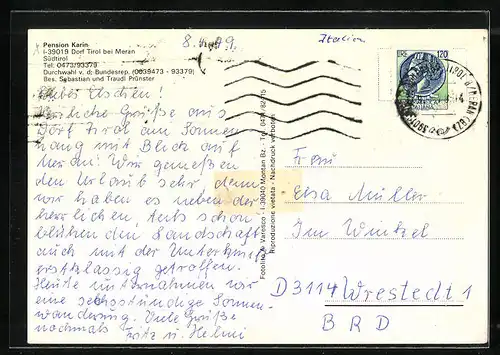 Pension Karin
I-39019 Dorf Tirol bei Meran
Südtirol
Tel. 0473/93379
Durchwahl v. d. Bundesrep. (0039473 - 93379)
Bes. Sebastian und Traudl Prünster
8. 9.
Italien
120
Liebes
Herzliche Grüße aus
Dorf Tirol am Sonnen
hang mit Blick auf
Meran. Wir genießen
den Urlaub sehr, denn
wir haben es neben der
herrlichen, schon
blühenden Landschaft
auch mit der Unterkunft
erstklassig getroffen.
Heute unternahmen wir
eine sechsstündige Sonnen-
wanderung. Viele Grüße
nochmals Fritz u. Helmi
Fotolito Varesco - I-39040 Montan Bz. - Tel.
Riproduzione vietata - Nachdruck verboten
Frau
Elsa Müller
Im Winkel
D 3114 Wrestedt 1
BRD